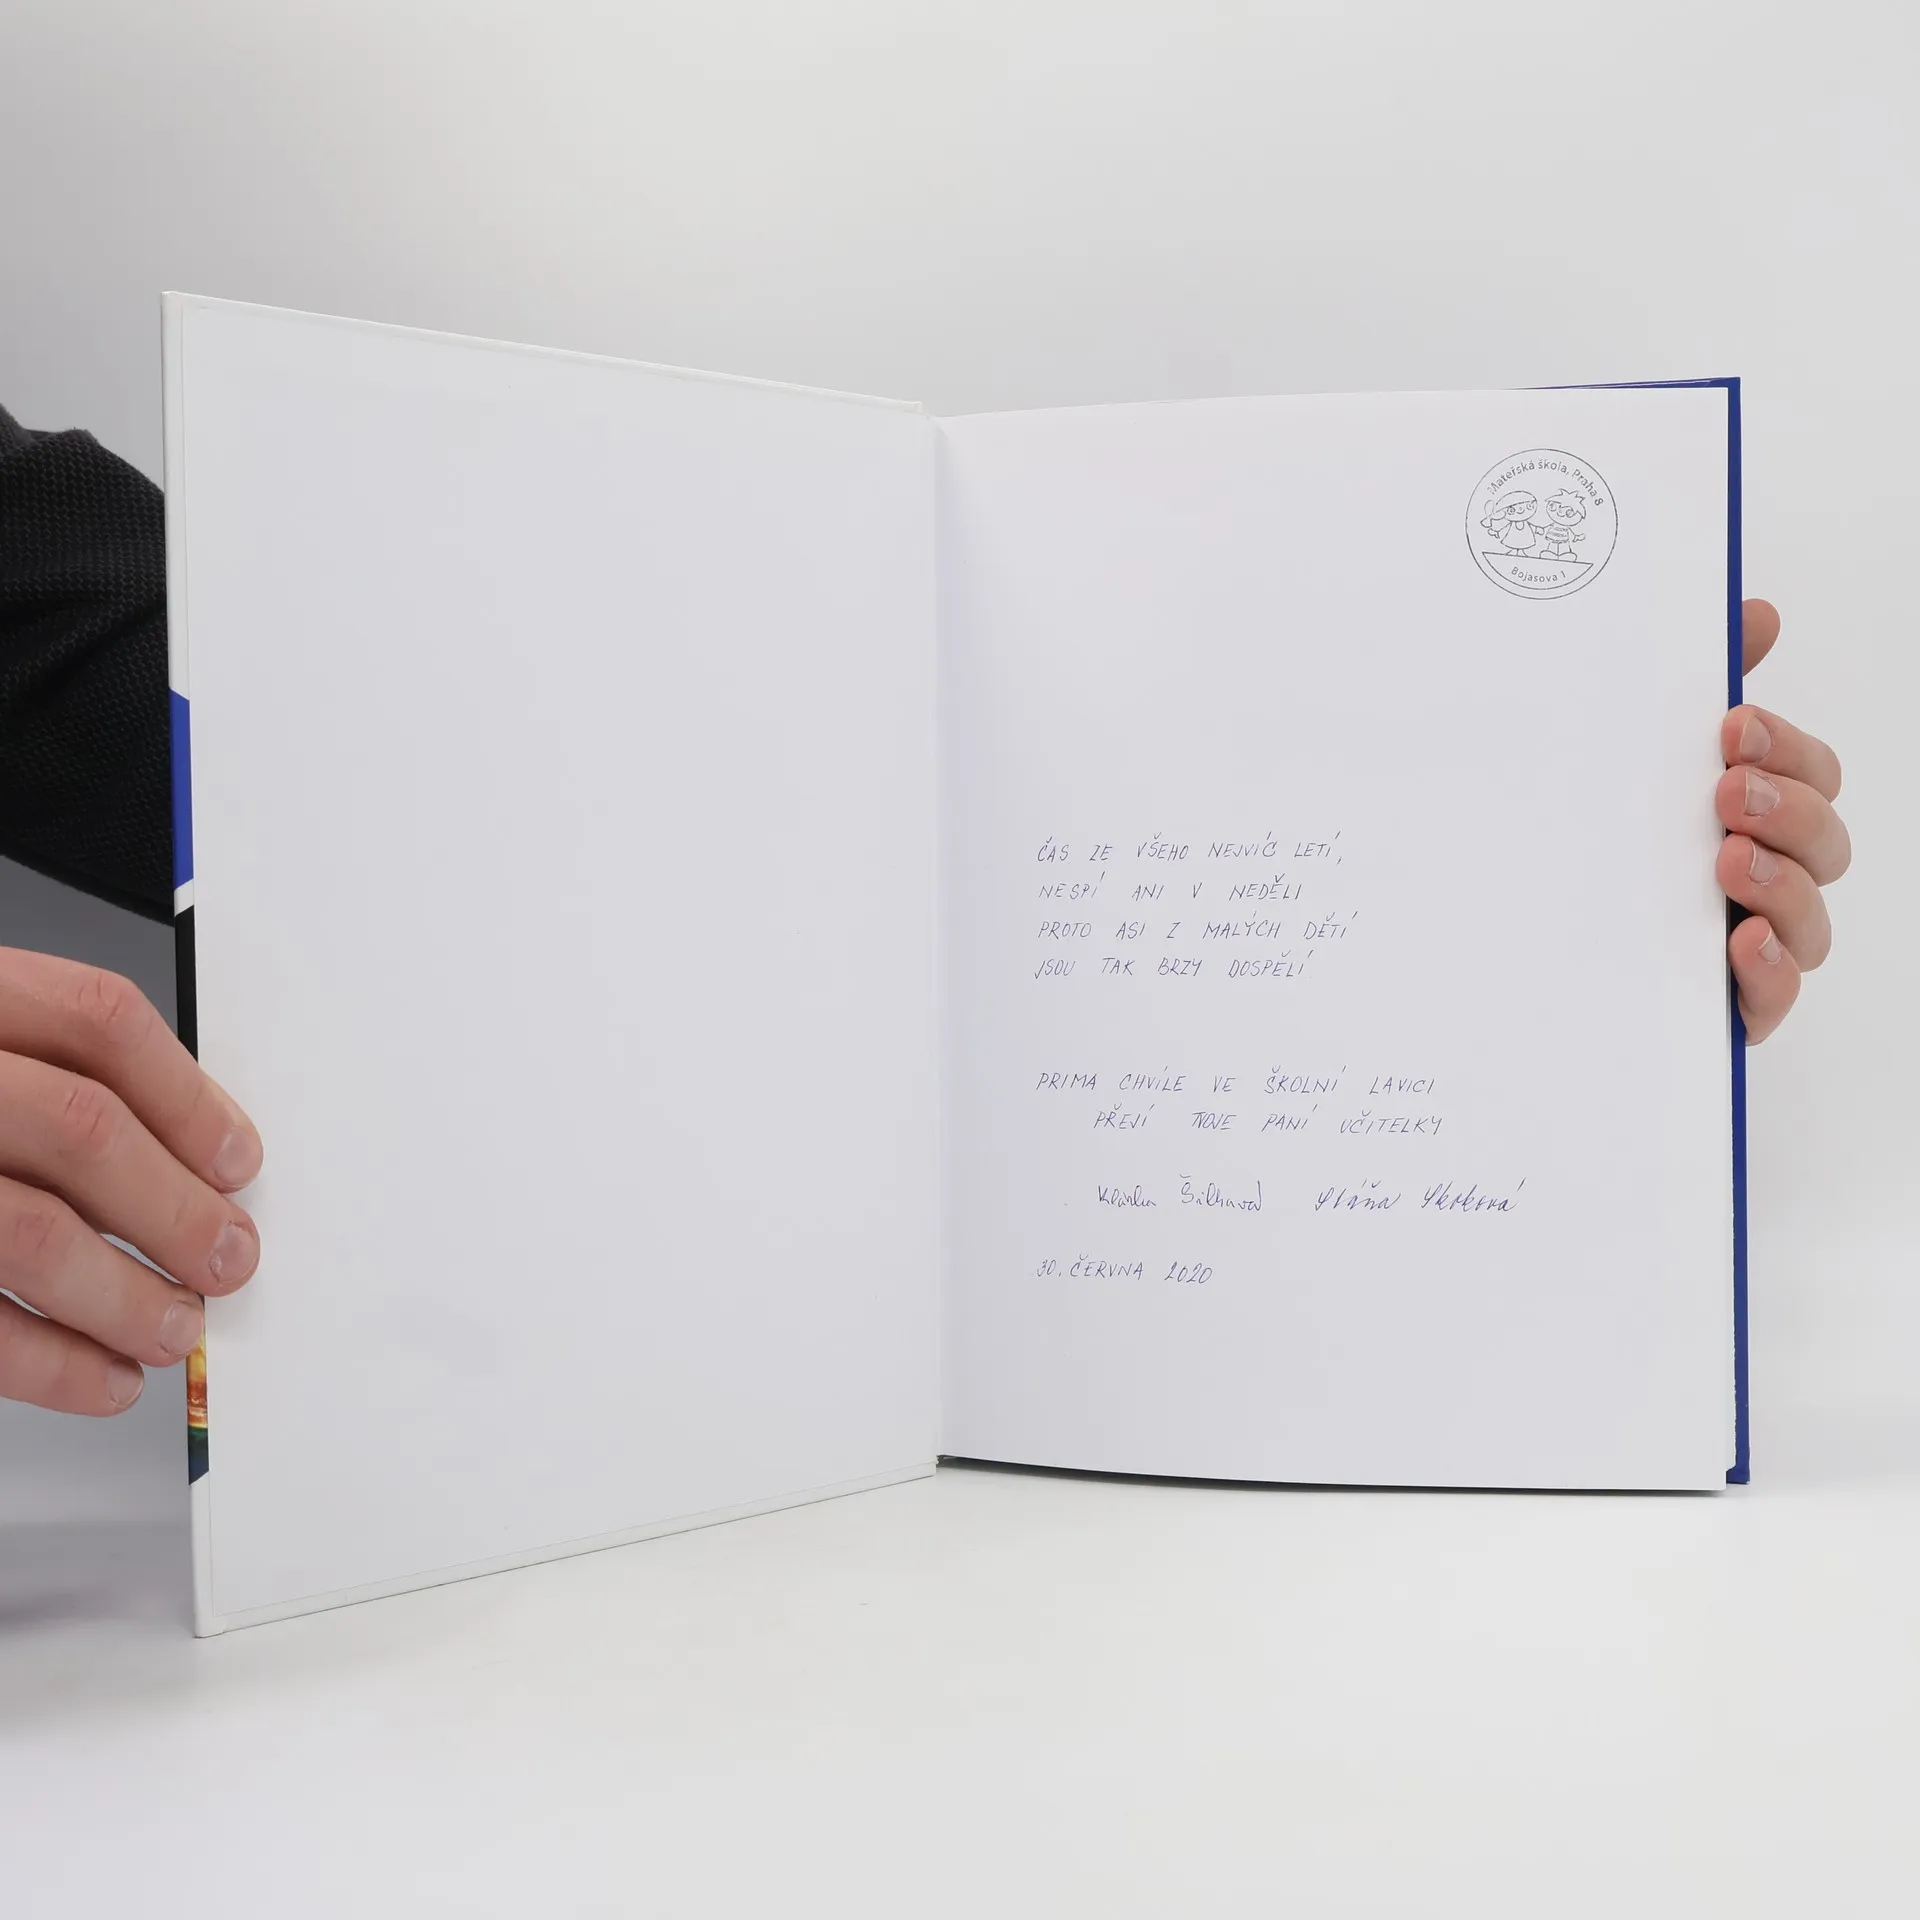 Mateřská škola, Praha 8
Bojasova 1
ČAS ZE VŠEHO NEJVÍC LETÍ,
NESPÍ ANI V NEDĚLI
PROTO ASI Z MALÝCH DĚTÍ
JSOU TAK BRZY DOSPĚLÍ.
PRIMA CHVÍLE VE ŠKOLNÍ LAVICI
PŘEJÍ TVOJE PANÍ UČITELKY
Stáňa
30. ČERVNA 2020